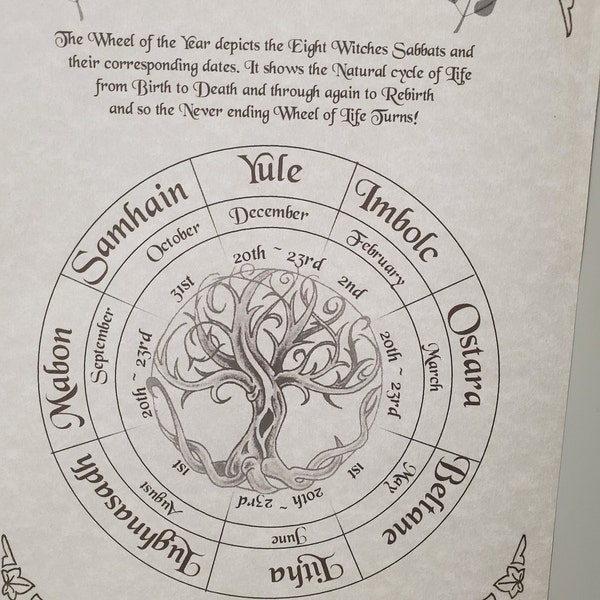 The Wheel of the Year depicts the Eight Witches Sabbats and
their corresponding dates. It shows the Natural cycle of Life
from Birth to Death and through again to Rebirth
and so the Never ending Wheel of Life Turns!
Yule
December
20th ~ 23rd
Imbolc
February
2nd
Ostara
March
20th ~ 23rd
Beltane
May
1st
Litha
June
20th ~ 23rd
Lughnasadh
August
1st
Mabon
September
20th ~ 23rd
Samhain
October
31st